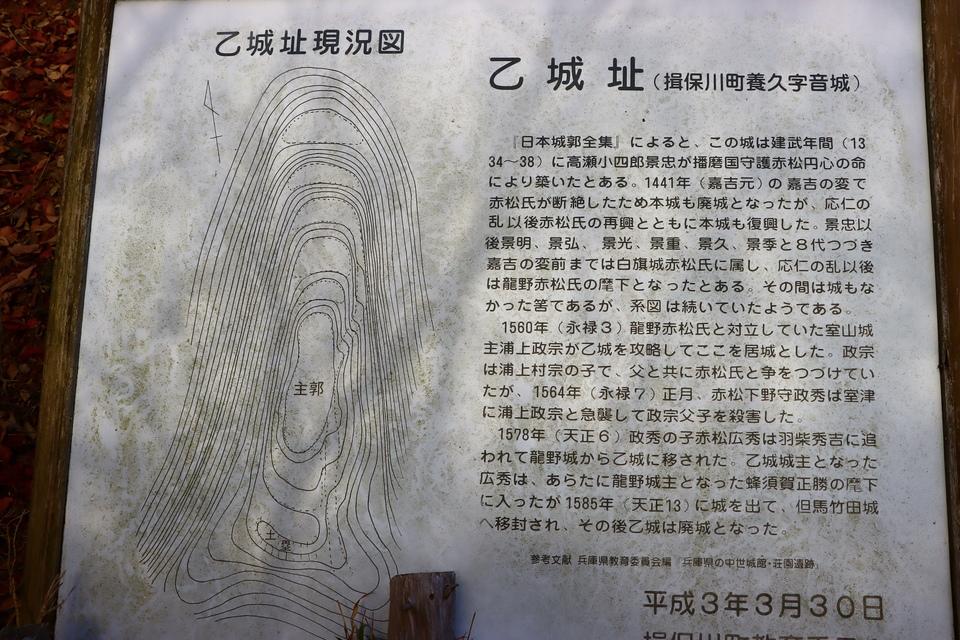 乙城址現況図
主郭
土塁
乙城址（揖保川町養久字音城）
『日本城郭全集』によると、この城は建武年間（13
34～38）に高瀬小四郎景忠が播磨国守護赤松円心の命
により築いたとある。1441年（嘉吉元）の嘉吉の変で
赤松氏が断絶したため本城も廃城となったが、応仁の
乱以後赤松氏の再興とともに本城も復興した。景忠以
後景明、景弘、景光、景重、景久、景季と8代つづき
嘉吉の変前までは白旗城赤松氏に属し、応仁の乱以後
は龍野赤松氏の麾下となったとある。その間は城もな
かった筈であるが、系図は続いていたようである。
1560年（永禄3）龍野赤松氏と対立していた室山城
主浦上政宗が乙城を攻略してここを居城とした。政宗
は浦上村宗の子で、父と共に赤松氏と争をつづけてい
たが、1564年（永禄7）正月、赤松下野守政秀は室津
に浦上政宗と急襲して政宗父子を殺害した。
1578年（天正6）政秀の子赤松広秀は羽柴秀吉に追
われて龍野城から乙城に移された。乙城城主となった
広秀は、あらたに龍野城主となった蜂須賀正勝の麾下
に入ったが1585年（天正13）に城を出て、但馬竹田城
へ移封され、その後乙城は廃城となった。
参考文献 兵庫県教育委員会編「兵庫県の中世城館・荘園遺跡」
平成3年3月30日
揖保川町教